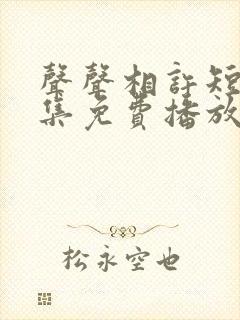 聲聲相許短
集免費播放
松永空也